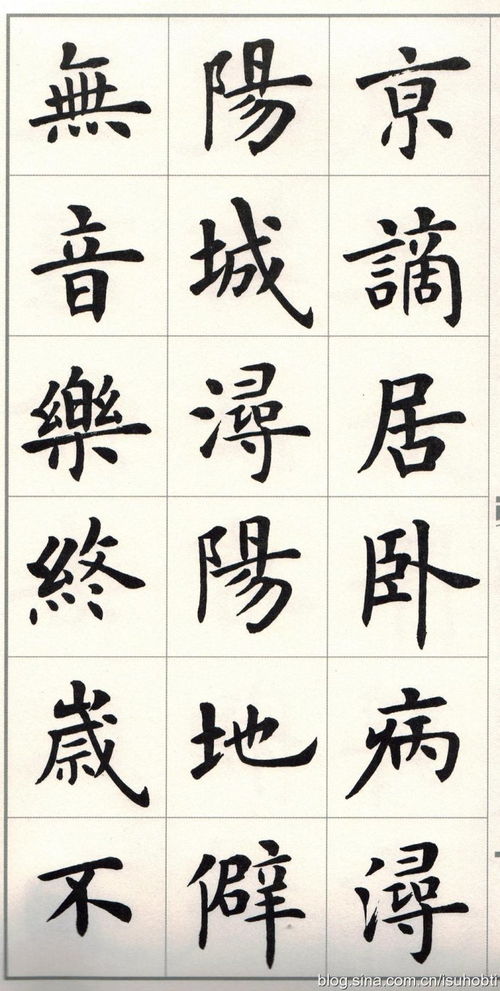 京謫居卧病潯
陽城潯陽地僻
無音樂終歲不
blog.sina.com.cn/isuhobti